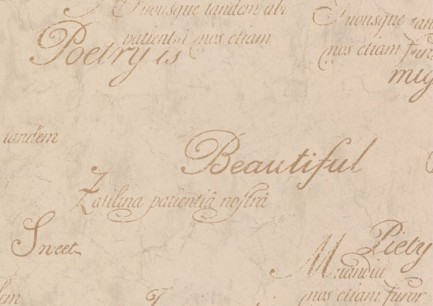 Quousque tandem abu
patientia nos etiam
Poetry is
Quousque tan
nos etiam furo
mig
tandem
Beautiful
patientia nostra
Sweet
Piety
nos etiam furor